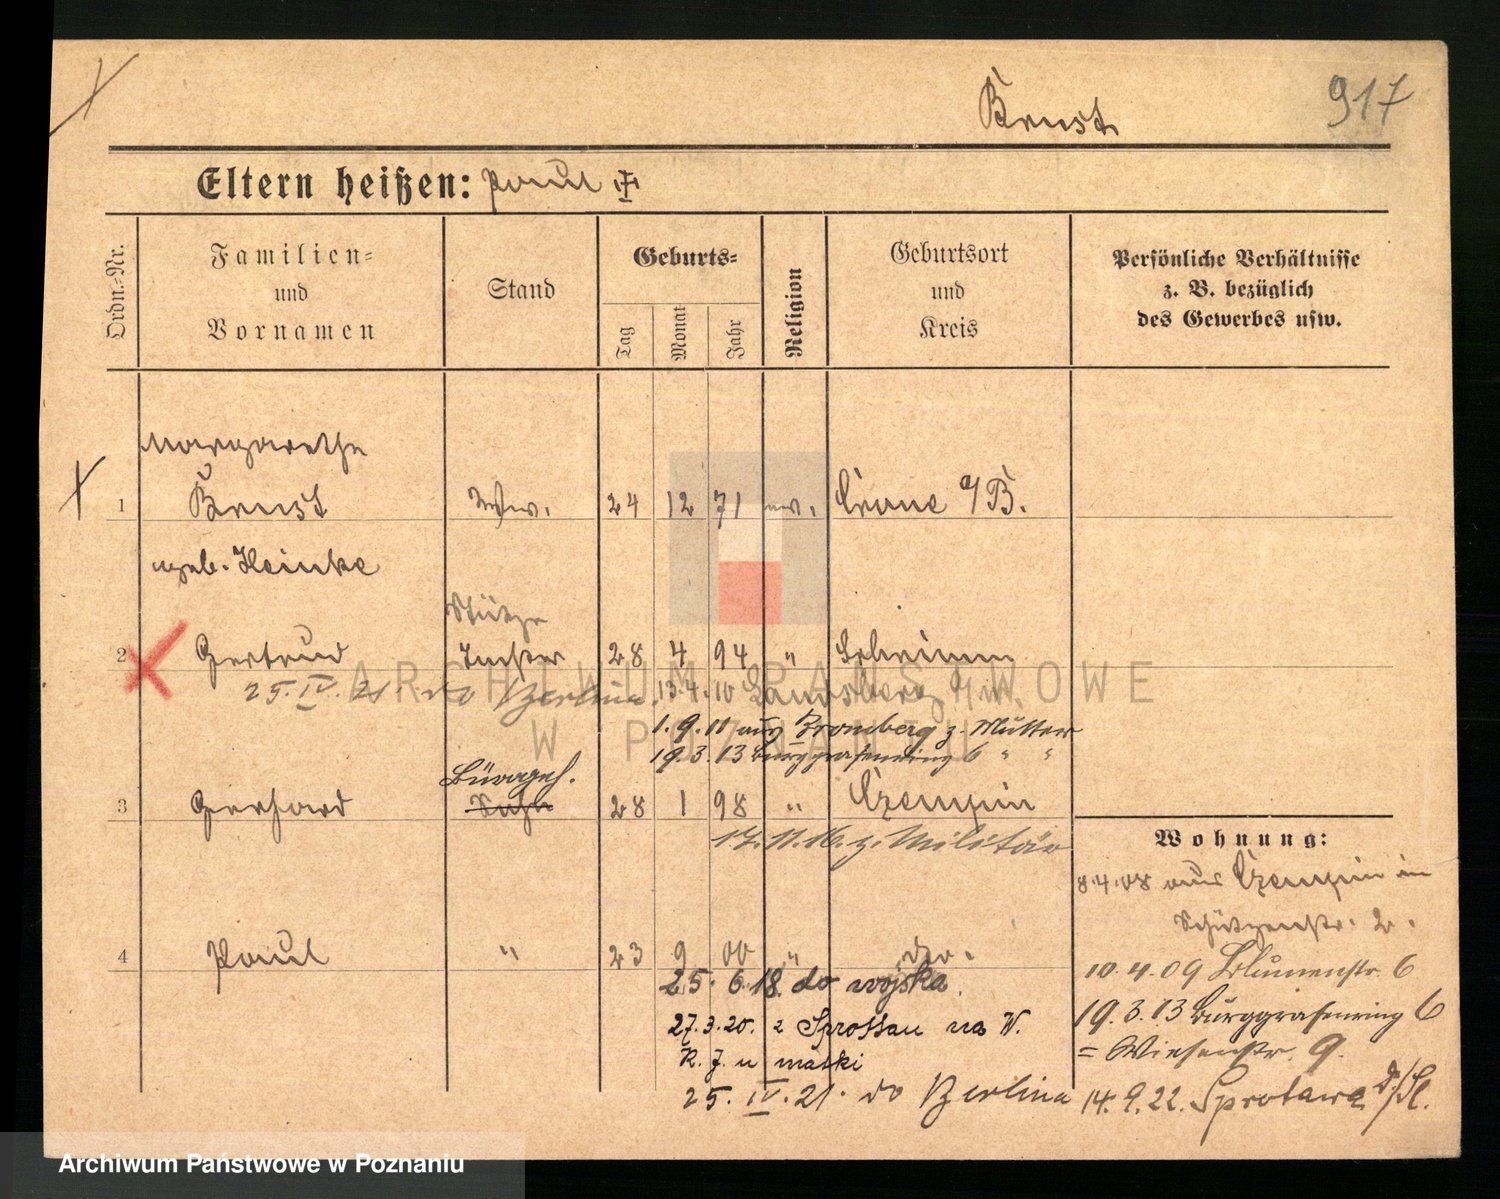 Ernst 917
Eltern heißen: Paul
Ordn.-Nr.
Familien-
und
Vornamen
Stand
Geburts-
Tag
Monat
Jahr
Religion
Geburtsort
und
Kreis
Persönliche Verhältnisse
z. B. bezüglich
des Gewerbes usw.
Margarethe
1 Ernst Wtw. 24 12 71 ev. Crone a/B.
geb. Heinke
Stütze
2 Gertrud Tochter 28 4 94 " Schrimm
25.IV.21. do Berlina 13.4.10 Landsberg a/W.
1.9.11 aus Bromberg z. Mutter
19.3.13 Burggrafenring 6 " "
Bürogeh.
3 Gerhard Sohn 28 1 98 " Czempin
17.11.16. z. Militär
Wohnung:
8.4.08 aus Czempin in
Schützenstr. 2.
4 Paul " 23 9 00 " do.
25.6.18. do wojska
27.3.20. z Sprottau na W.
R. J. u matki
25.IV.21. do Berlina
10.4.09 Blumenstr. 6
19.3.13 Burggrafenring 6
= Wiesenstr. 9.
14.9.22. Sprotawa D./Sl.
ARCHIWUM PAŃSTWOWE
W POZNANIU
Archiwum Państwowe w Poznaniu